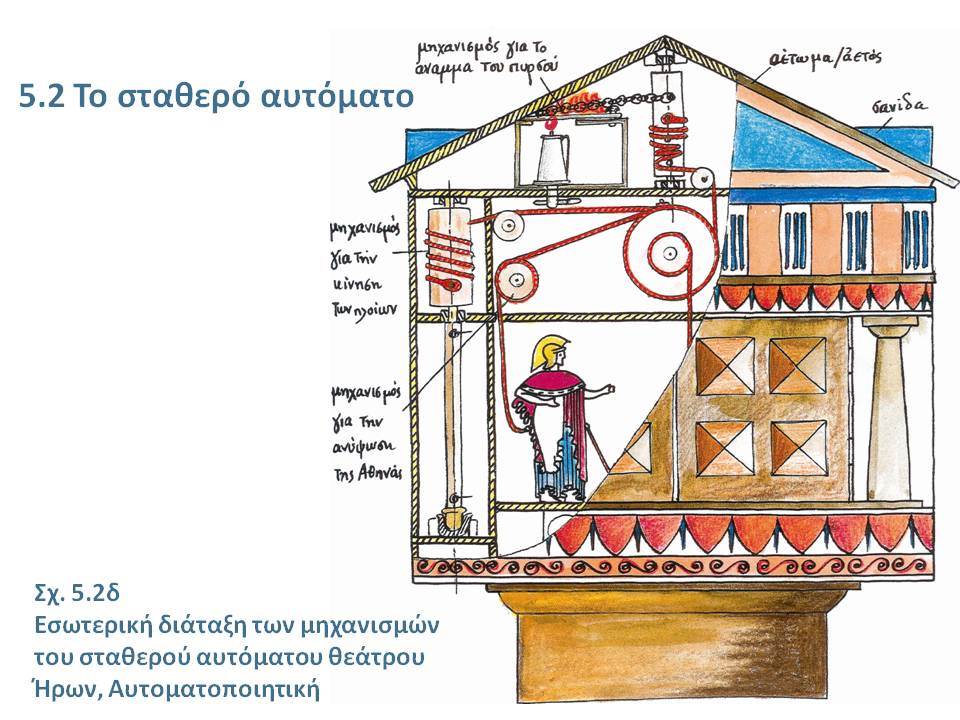 5.2 Το σταθερό αυτόματο
μηχανισμός για το
άναμμα του πυρσού
αέτωμα/ἀετός
σανίδα
μηχανισμός
για την
κίνηση
των πλοίων
μηχανισμός
για την
ανύψωση
της Αθηνάς
Σχ. 5.2δ
Εσωτερική διάταξη των μηχανισμών
του σταθερού αυτόματου θεάτρου
Ήρων, Αυτοματοποιητική